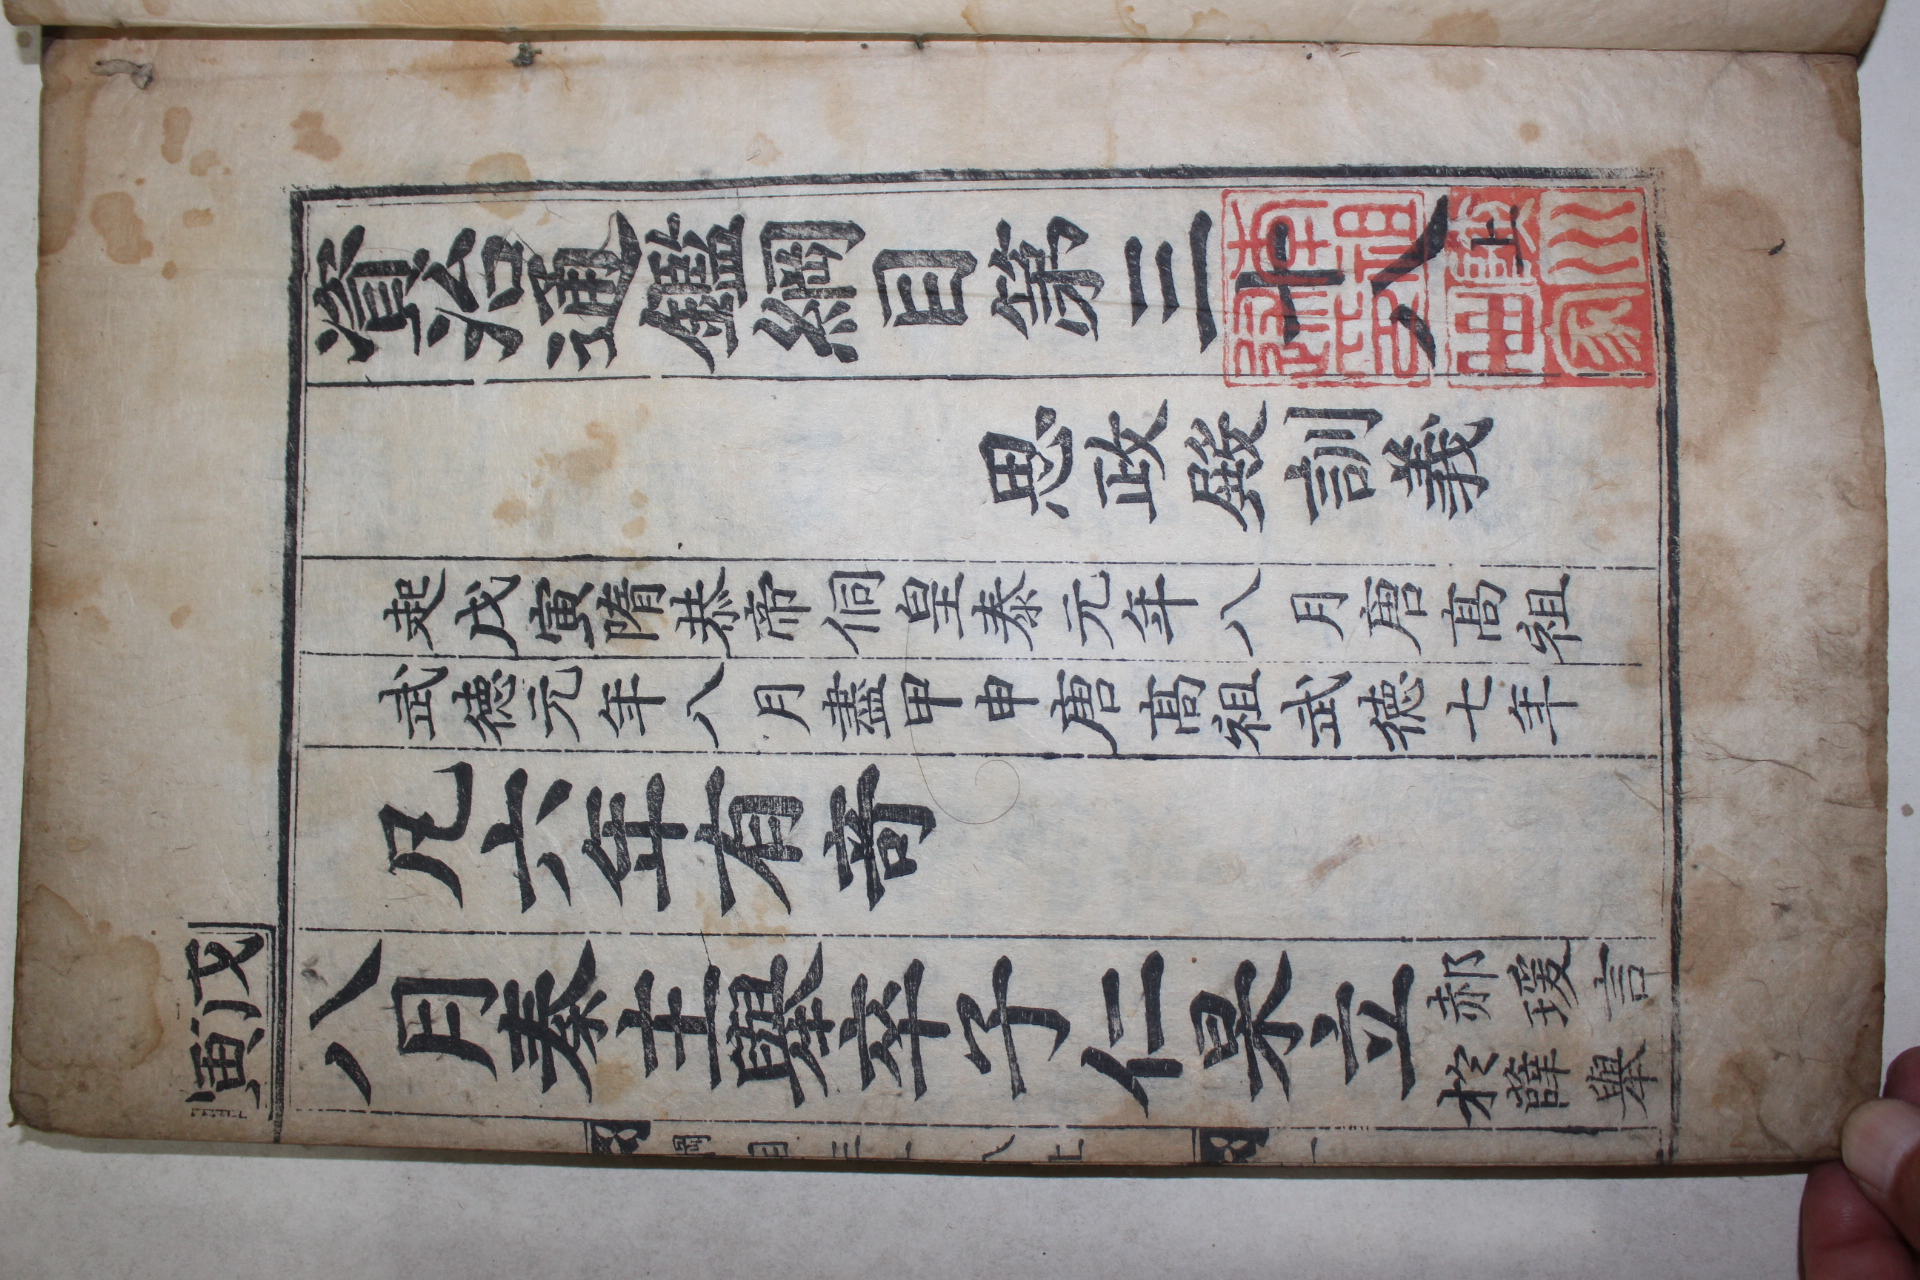 資治通鑑綱目第三十八上
思政殿訓義
起戊寅隋恭帝侗皇泰元年八月唐髙祖
武德元年八月盡甲申唐髙祖武德七年
凡六年有竒
戊寅
八月秦主舉卒子仁杲立
郝瑗言
於薛舉